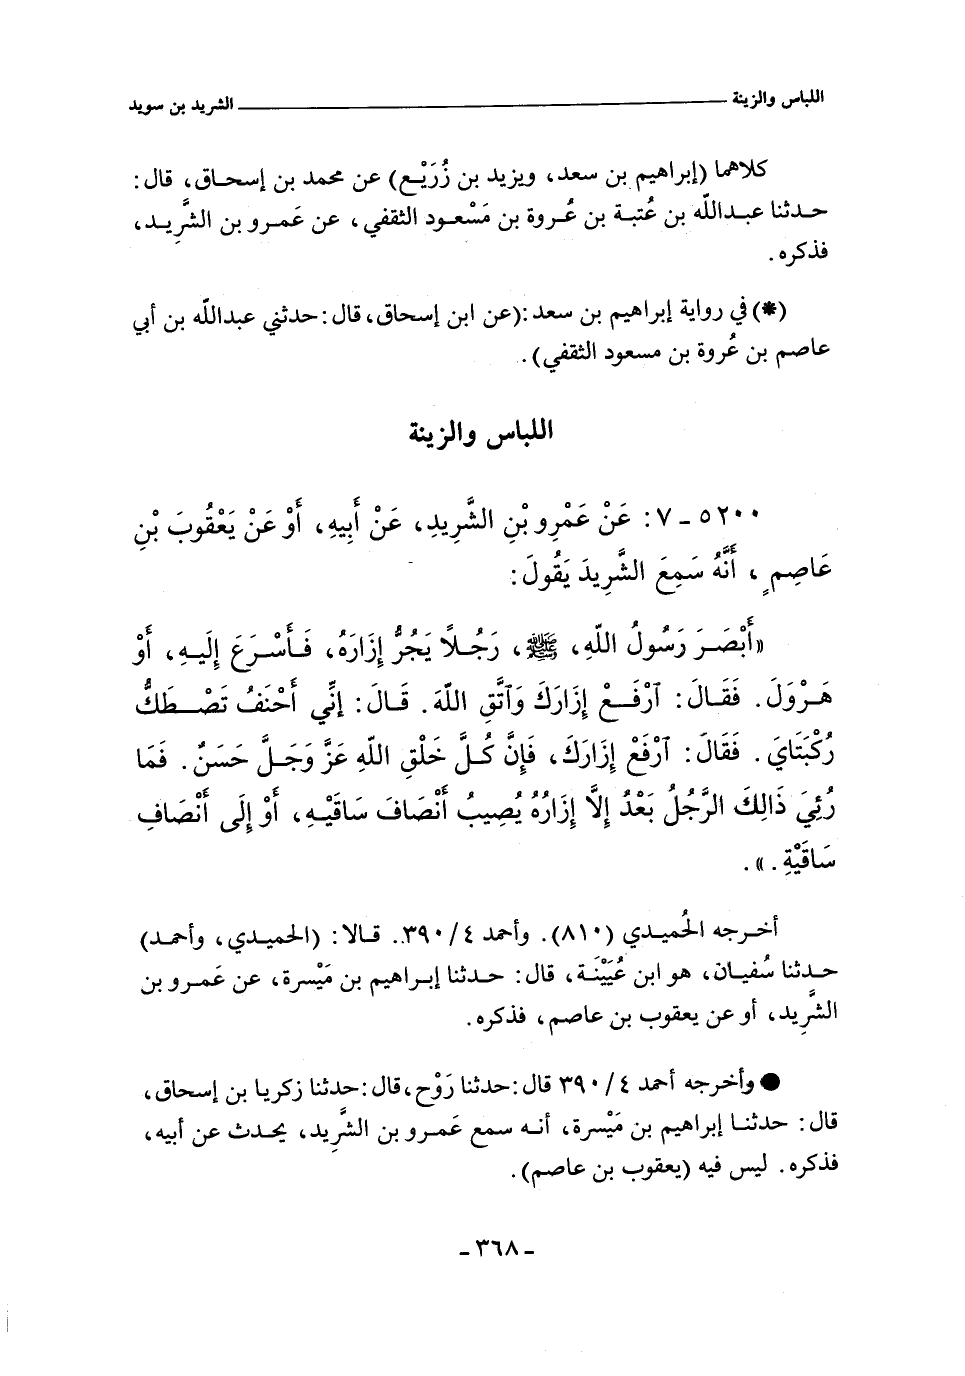 اللباس والزينة ــــــــــــــــ الشريد بن سويد
كلاهما (إبراهيم بن سعد، ويزيد بن زُرَيْع) عن محمد بن إسحاق، قال:
حدثنا عبدالله بن عُتبة بن عُروة بن مَسْعود الثقفي، عن عَمرو بن الشَّرِيد،
فذكره.
(*) في رواية إبراهيم بن سعد: (عن ابن إسحاق، قال: حدثني عبدالله بن أبي
عاصم بن عُروة بن مسعود الثقفي).
اللباس والزينة
٥٢٠٠ ـ ٧: عَنْ عَمْرِو بْنِ الشَّرِيدِ، عَنْ أَبِيهِ، أَوْ عَنْ يَعْقُوبَ بْنِ
عَاصِمٍ، أَنَّهُ سَمِعَ الشَّرِيدَ يَقُولَ:
«أَبْصَرَ رَسُولُ اللهِ، ﷺ، رَجُلاً يَجُرُّ إِزَارَهُ، فَأَسْرَعَ إِلَيهِ، أَوْ
هَرْوَلَ. فَقَالَ: ٱرْفَعْ إِزَارَكَ وَٱتَّقِ اللهَ. قَالَ: إِنِّي أَحْنَفُ تَصْطَكُّ
رُكْبَتَايَ. فَقَالَ: ٱرْفَعْ إِزَارَكَ، فَإِنَّ كُلَّ خَلْقِ اللهِ عَزَّ وَجَلَّ حَسَنٌ. فَمَا
رُئِيَ ذَالِكَ الرَّجُلُ بَعْدُ إِلَّا إِزَارُهُ يُصِيبُ أَنْصَافَ سَاقَيْهِ، أَوْ إِلَى أَنْصَافِ
سَاقَيْهِ.».
أخرجه الحُميدي (٨١٠). وأحمد ٤/٣٩٠. قالا: (الحميدي، وأحمد)
حدثنا سُفيان، هو ابن عُيَيْنَة، قال: حدثنا إبراهيم بن مَيْسرة، عن عَمرو بن
الشَّرِيد، أو عن يعقوب بن عاصم، فذكره.
● وأخرجه أحمد ٤/٣٩٠ قال: حدثنا رَوْح، قال: حدثنا زكريا بن إسحاق،
قال: حدثنا إبراهيم بن مَيْسرة، أنه سمع عَمرو بن الشَّرِيد، يحدث عن أبيه،
فذكره. ليس فيه (يعقوب بن عاصم).
ـ ٣٦٨ ـ